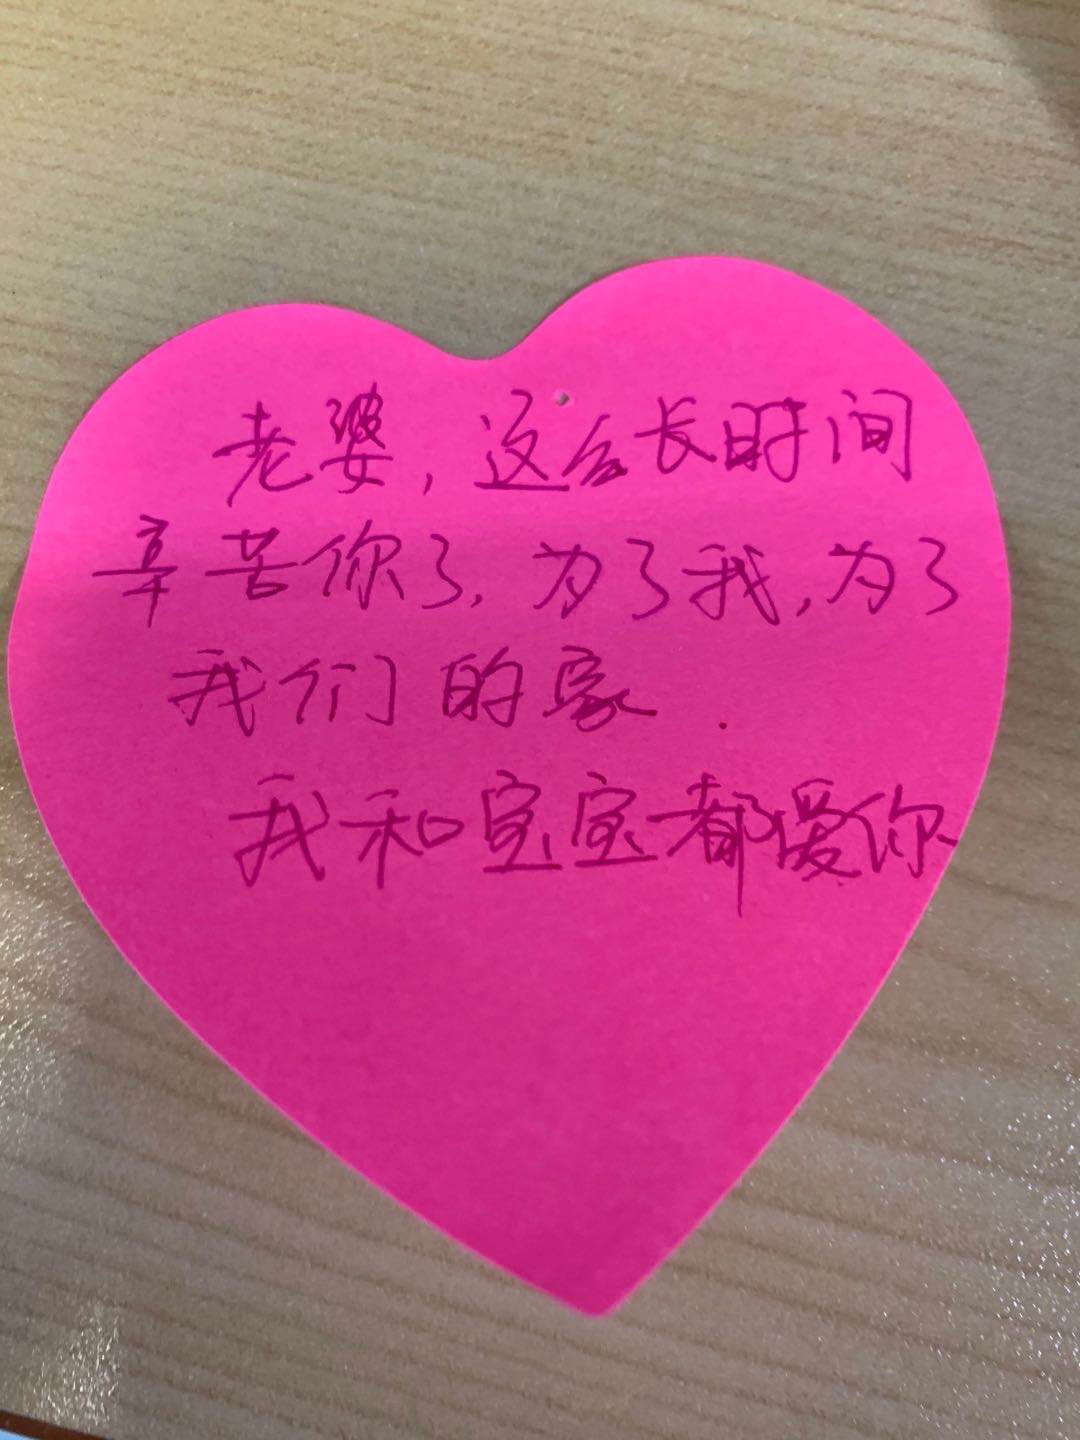 老婆，这么长时间
辛苦你了，为了我，为了
我们的家．
我和宝宝都爱你